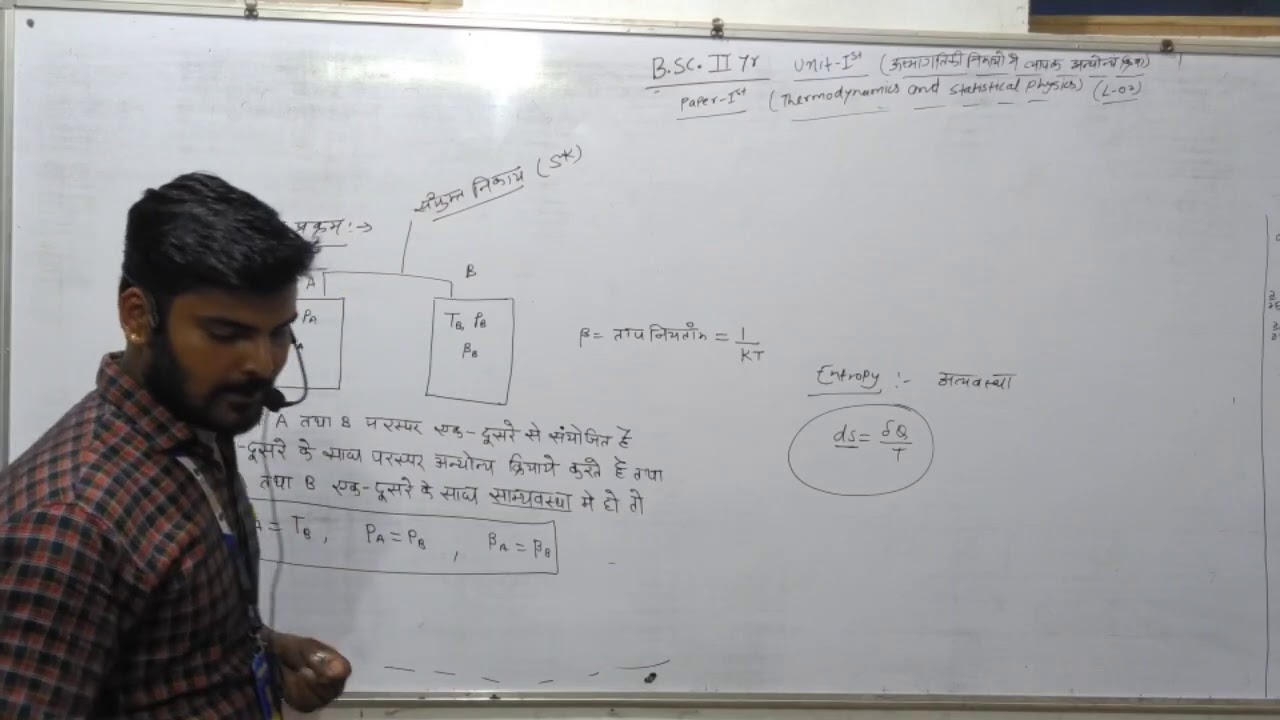 B.SC. II Yr Unit-Ist (ऊष्मागतिकी निकायो मे व्यापक अन्योन्य क्रिया)
Paper-Ist (Thermodynamics and Statistical Physics) (L-02)
संयुक्त निकाय (S*)
प्रक्रम :→
A B
PA
TB, PB
βB
β = ताप नियतांक = 1/KT
Entropy :- अव्यवस्था
ds = δQ/T
A तथा B परस्पर एक-दूसरे से संयोजित है
-दूसरे के साथ परस्पर अन्योन्य क्रियाये करते है तथा
तथा B एक-दूसरे के साथ साम्यवस्था मे हो तो
A = TB, PA = PB, βA = βB